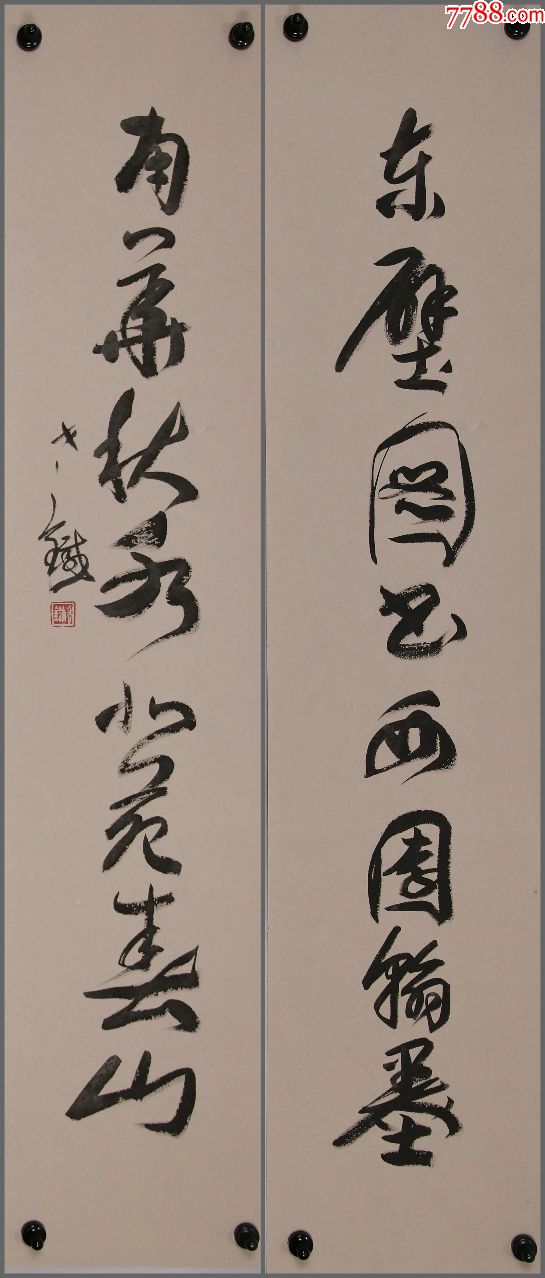 7788.com
东壁图书西园翰墨
南华秋水北苑春山